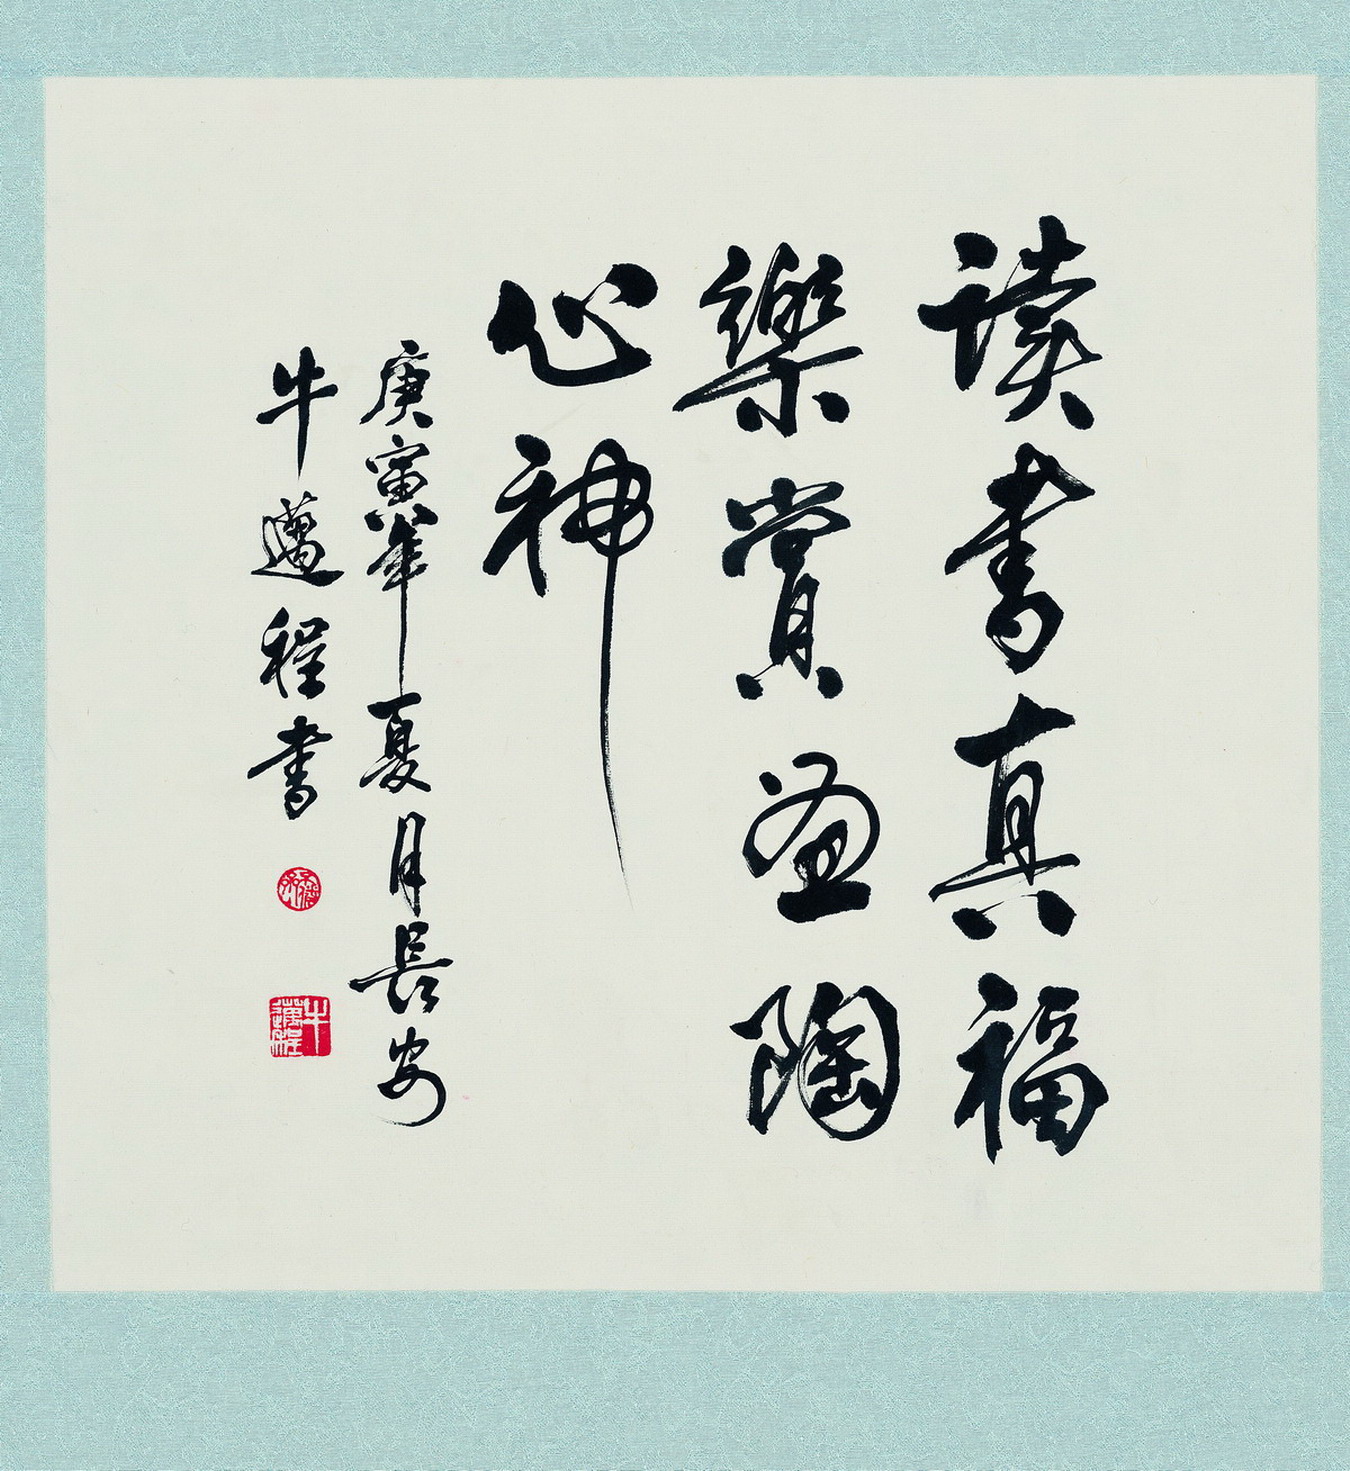 读书真福
樂賞画陶
心神
庚寅年夏月長安
牛邁程书
牛邁程